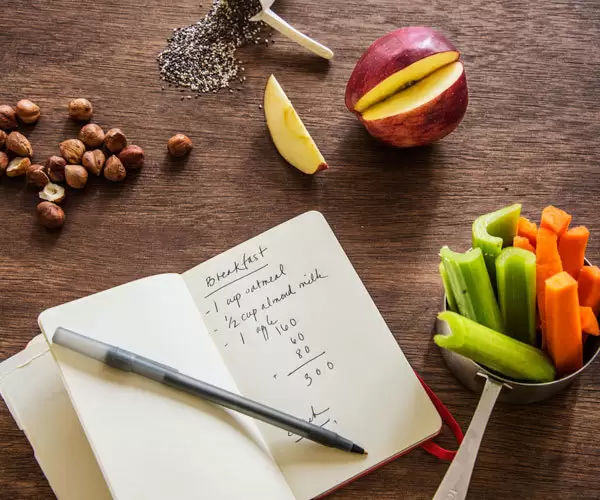 Breakfast
- 1 cup oatmeal
- 1/2 cup almond milk
- 1 apple
160
60
80
300